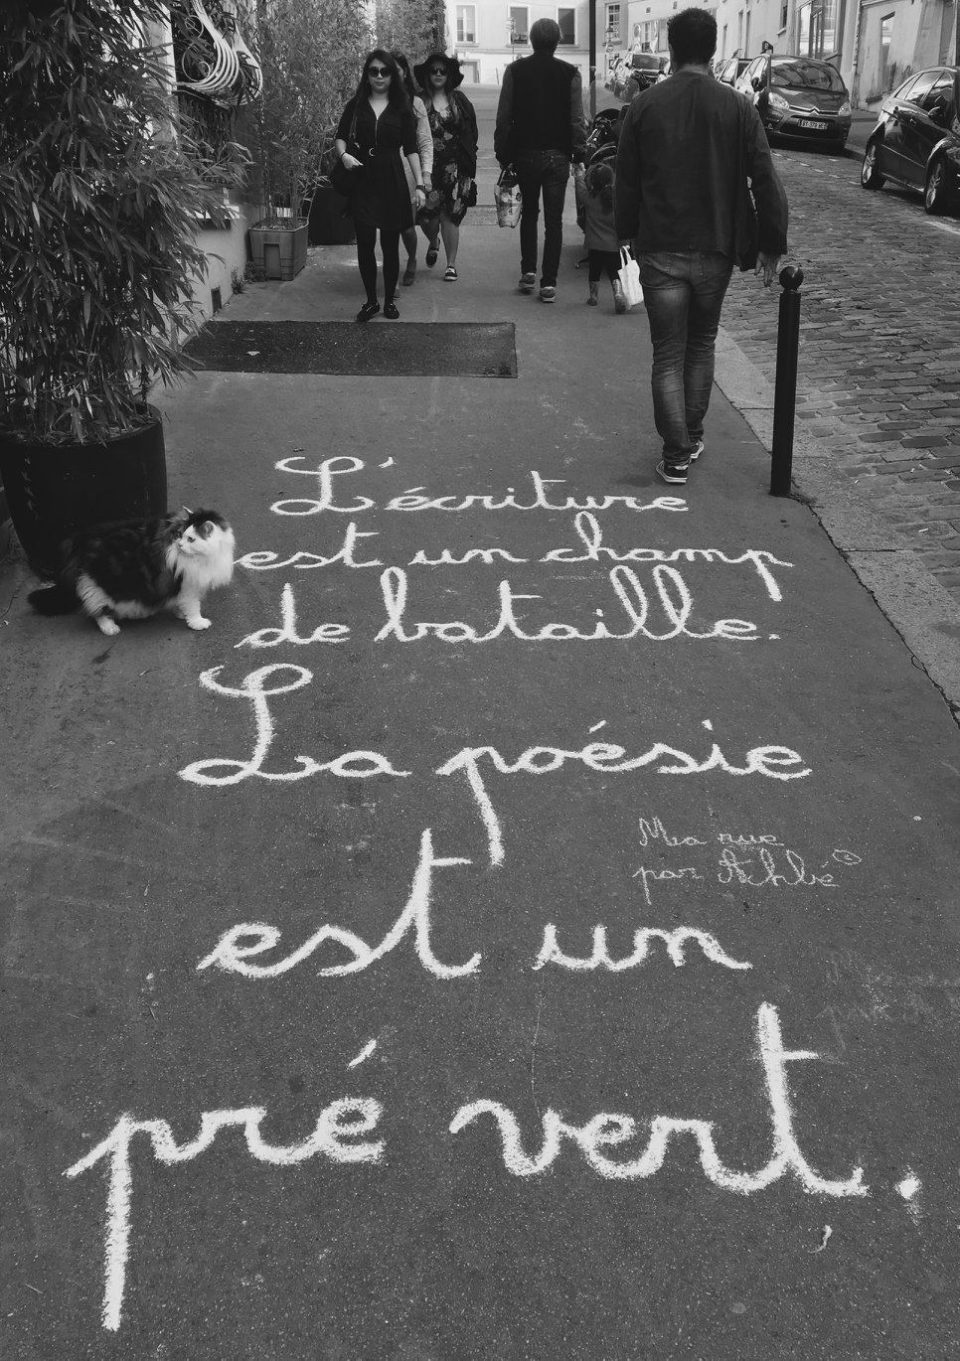 L'écriture
est un champ
de bataille.
La poésie
est un
pré vert.
Ma rue
par Achbé